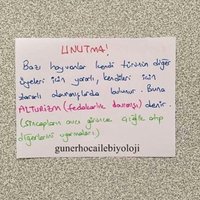 UNUTMA!
Bazı hayvanlar kendi türünün diğer
üyeleri için yararlı, kendileri için
zararlı davranışlarda bulunur. Buna
ALTURİZM (fedakarlık davranışı) denir.
(Sincapların avcı görünce çığlık atıp
diğerlerini uyarmaları)
gunerhocailebiyoloji